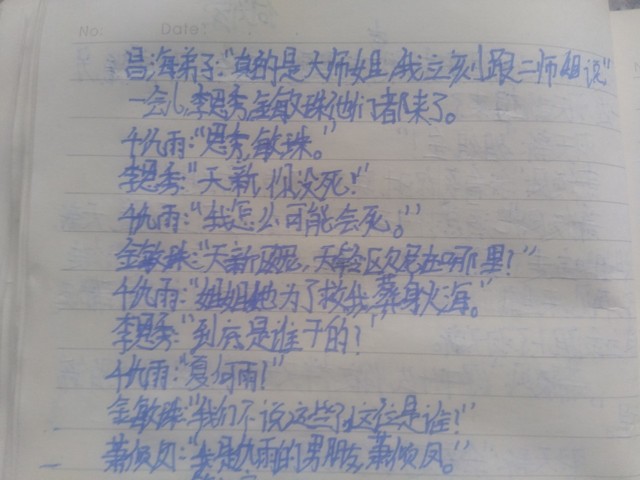 No:  Date:
昌海弟子:“真的是大师姐,我立刻跟二师姐说”
一会儿,李恩秀,金敏珠他们都来了。
千仇雨:“恩秀,敏珠。”
李恩秀:“天新,你没死!”
千仇雨:“我怎么可能会死。”
金敏珠:“天新欧尼,天轻欧尼在哪里?”
千仇雨:“姐姐她为了救我,葬身火海。”
李恩秀:“到底是谁干的?”
千仇雨:“夏何雨!”
金敏珠:“我们不说这些了,这位是谁?”
萧倾风:“是仇雨的男朋友,萧倾风。”